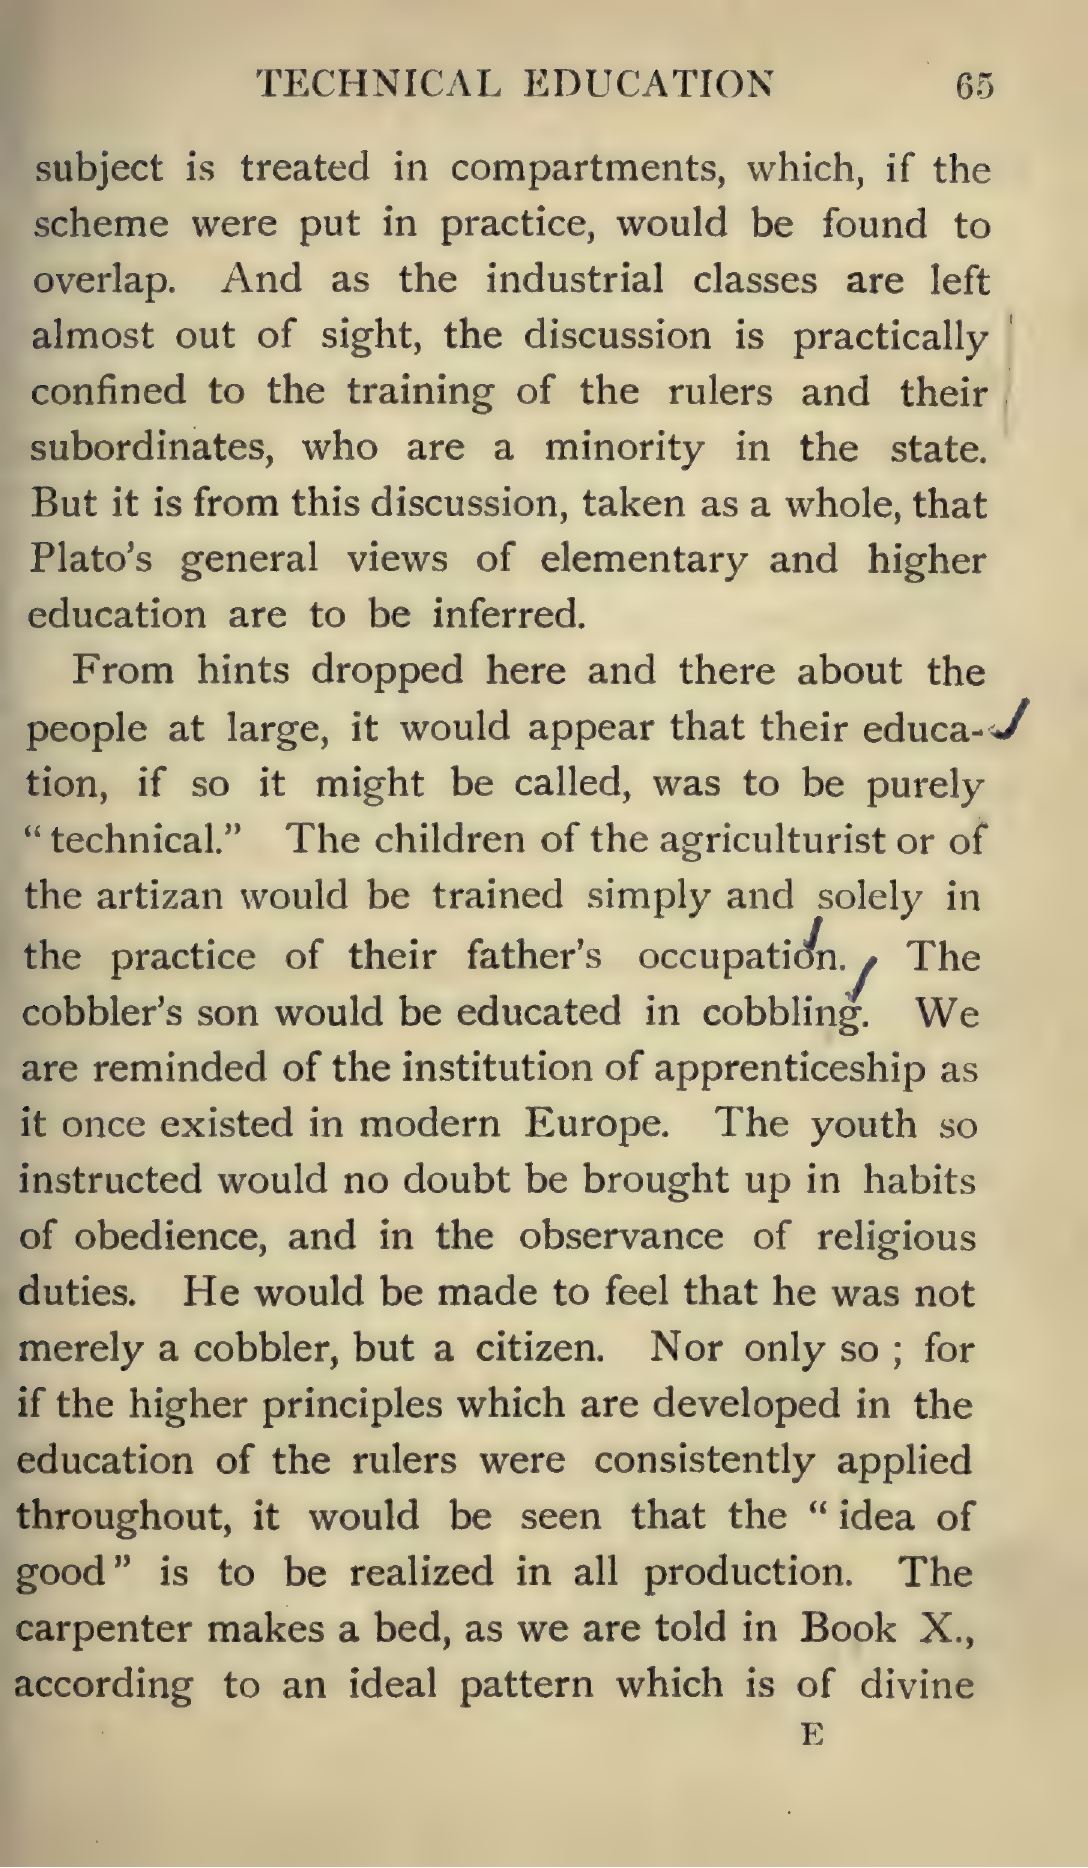 TECHNICAL EDUCATION 65
subject is treated in compartments, which, if the
scheme were put in practice, would be found to
overlap. And as the industrial classes are left
almost out of sight, the discussion is practically
confined to the training of the rulers and their
subordinates, who are a minority in the state.
But it is from this discussion, taken as a whole, that
Plato's general views of elementary and higher
education are to be inferred.
From hints dropped here and there about the
people at large, it would appear that their educa-
tion, if so it might be called, was to be purely
“technical.” The children of the agriculturist or of
the artizan would be trained simply and solely in
the practice of their father's occupation. The
cobbler's son would be educated in cobbling. We
are reminded of the institution of apprenticeship as
it once existed in modern Europe. The youth so
instructed would no doubt be brought up in habits
of obedience, and in the observance of religious
duties. He would be made to feel that he was not
merely a cobbler, but a citizen. Nor only so ; for
if the higher principles which are developed in the
education of the rulers were consistently applied
throughout, it would be seen that the “idea of
good” is to be realized in all production. The
carpenter makes a bed, as we are told in Book X.,
according to an ideal pattern which is of divine
E